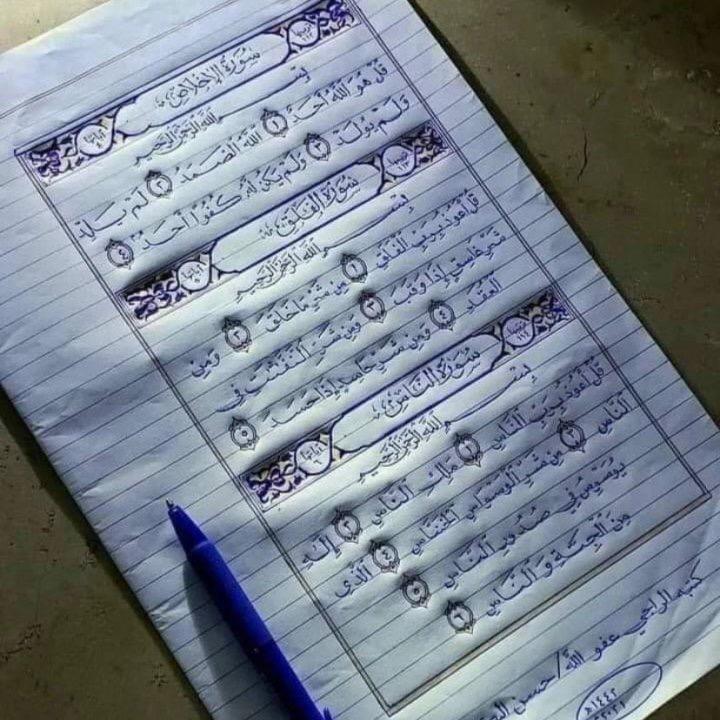 ترتيبها ١١٢ سُورَةُ الإِخْلَاصِ آياتها ٤
بِسْمِ اللَّهِ الرَّحْمَٰنِ الرَّحِيمِ
قُلْ هُوَ اللَّهُ أَحَدٌ ١ اللَّهُ الصَّمَدُ ٢ لَمْ يَلِدْ
وَلَمْ يُولَدْ ٣ وَلَمْ يَكُن لَّهُ كُفُوًا أَحَدٌ ٤
ترتيبها ١١٣ سُورَةُ الفَلَقِ آياتها ٥
بِسْمِ اللَّهِ الرَّحْمَٰنِ الرَّحِيمِ
قُلْ أَعُوذُ بِرَبِّ الْفَلَقِ ١ مِن شَرِّ مَا خَلَقَ ٢ وَمِن
شَرِّ غَاسِقٍ إِذَا وَقَبَ ٣ وَمِن شَرِّ النَّفَّٰثَٰتِ فِى
الْعُقَدِ ٤ وَمِن شَرِّ حَاسِدٍ إِذَا حَسَدَ ٥
ترتيبها ١١٤ سُورَةُ النَّاسِ آياتها ٦
بِسْمِ اللَّهِ الرَّحْمَٰنِ الرَّحِيمِ
قُلْ أَعُوذُ بِرَبِّ النَّاسِ ١ مَلِكِ النَّاسِ ٢ إِلَٰهِ
النَّاسِ ٣ مِن شَرِّ الْوَسْوَاسِ الْخَنَّاسِ ٤ الَّذِى
يُوَسْوِسُ فِى صُدُورِ النَّاسِ ٥
مِنَ الْجِنَّةِ وَالنَّاسِ ٦
كتبه الراجي عفو الله/حسن
١٤٤٢هـ
٢٠٢١